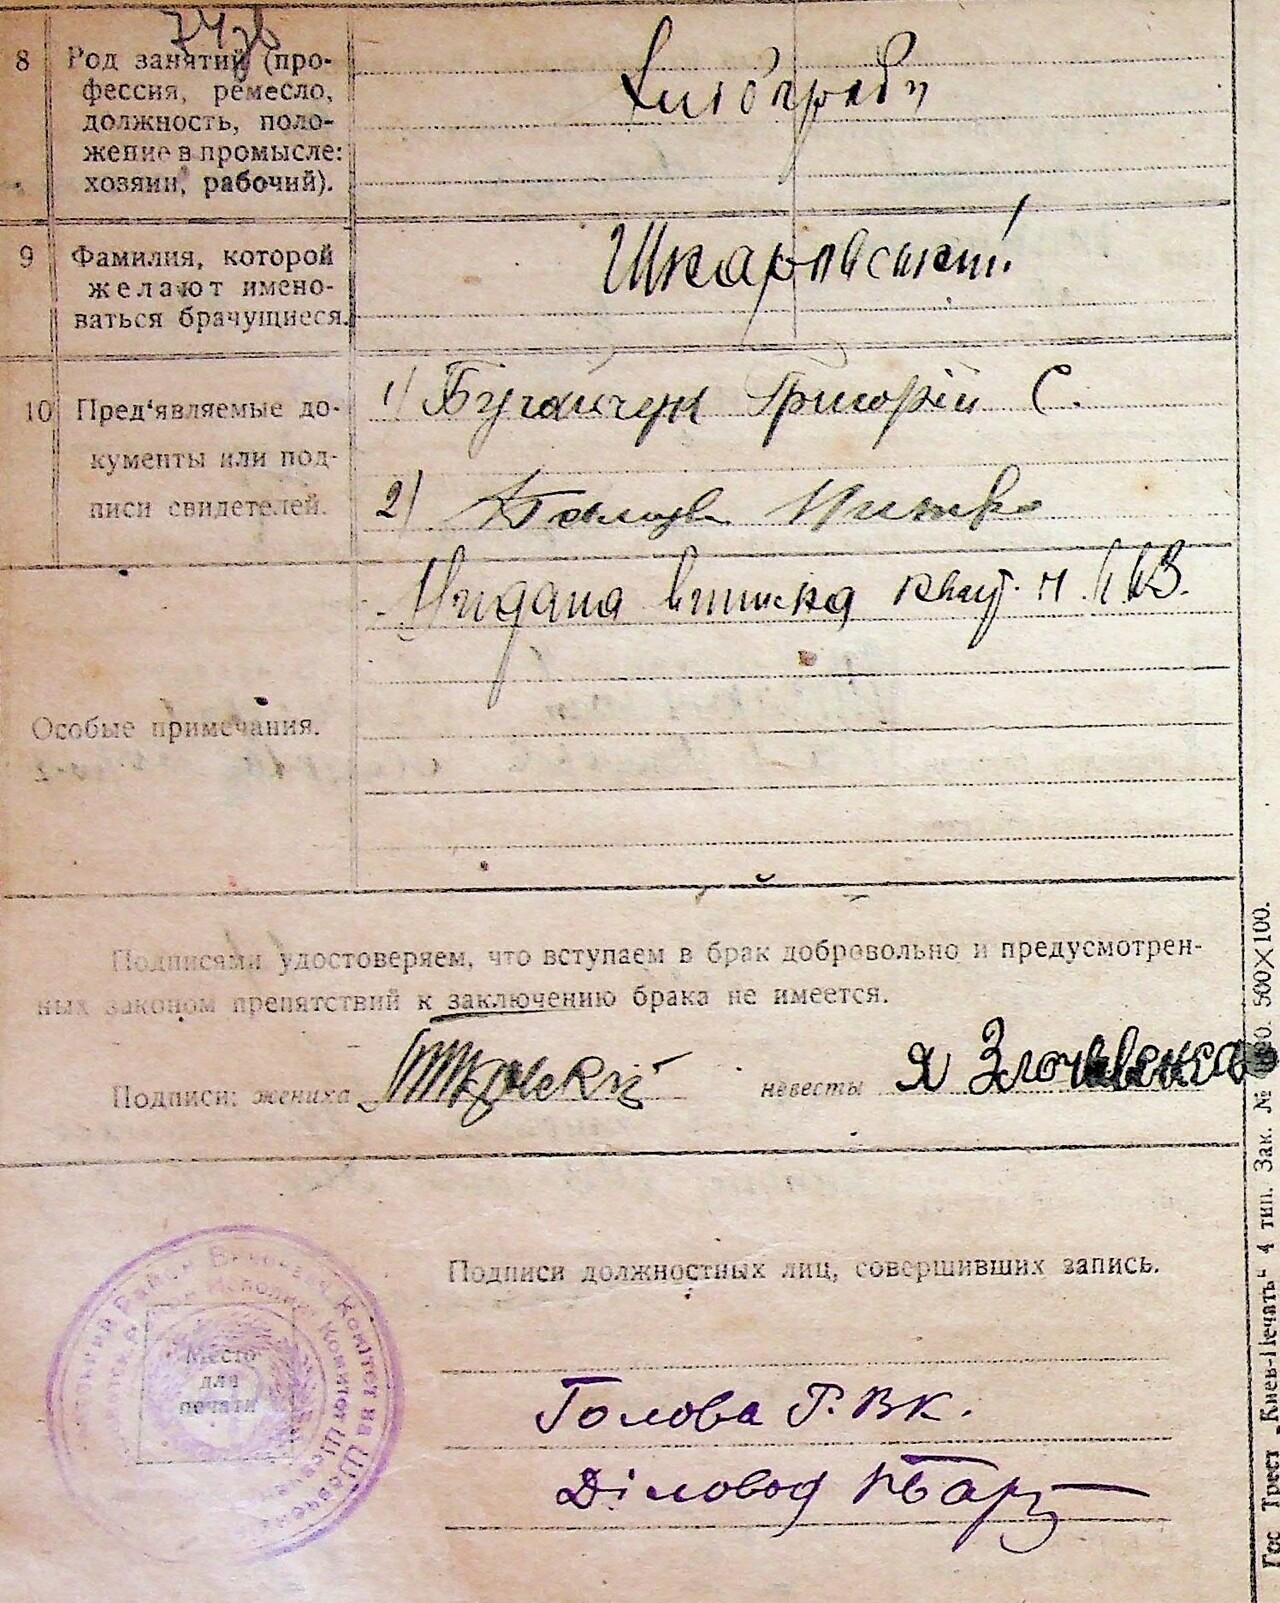 8 Род занятий (про-
фессия, ремесло,
должность, поло-
жение в промысле:
хозяин, рабочий).
Хлібороби
9 Фамилия, которой
желают имено-
ваться брачущиеся.
Шкаровський
10 Пред'являемые до-
кументы или под-
писи свидетелей.
1) Бугайчук Григорій С.
2)
Видана виписка
Особые примечания.
Подписями удостоверяем, что вступаем в брак добровольно и предусмотрен-
ных законом препятствий к заключению брака не имеется.
Подписи: жениха невесты я
Подписи должностных лиц, совершивших запись.
Место
для
печати
Голова Р.ВК.
Діловод
Гос Трест „Киев-Печать" 4 тип. Зак. № 500×100.